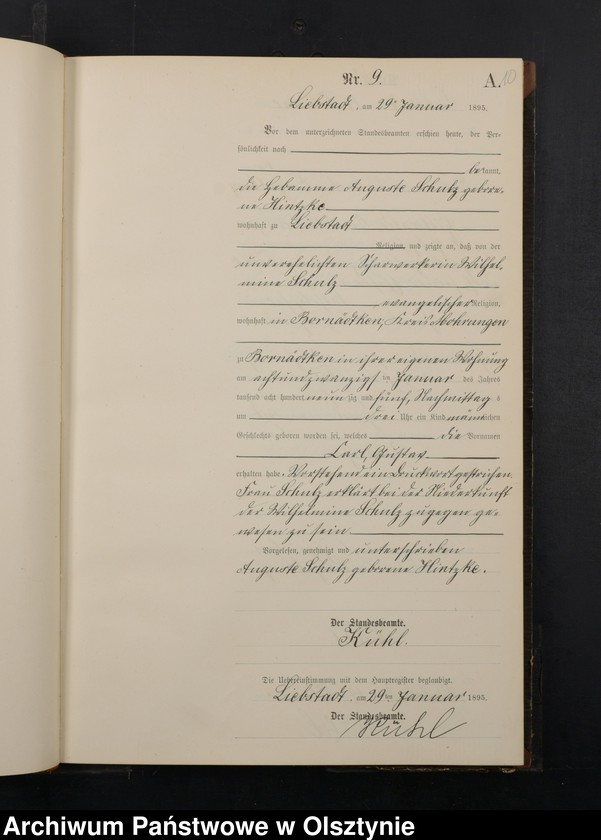 Nr. 9.
A. 10
Liebstadt, am 29. Januar 1895.
Vor dem unterzeichneten Standesbeamten erschien heute, der Per-
sönlichkeit nach
bekannt,
die Hebamme Auguste Schulz gebore-
ne Hintzke
wohnhaft zu Liebstadt
Religion, und zeigte an, daß von der
unverehelichten Scharwerkerin Wilhel,
mine Schulz
evangelischer Religion,
wohnhaft in Bornädtken, Kreis Mohrungen
zu Bornädtken in ihrer eigenen Wohnung
am achtundzwanzigsten Januar des Jahres
tausend acht hundert neunzig und fünf, Nachmittags
um drei Uhr ein Kind männlichen
Geschlechts geboren worden sei, welches die Vornamen
Carl, Gustav
erhalten habe. Vorstehend ein Druckwort gestrichen.
Frau Schulz erklärt bei der Niederkunft
der Wilhelmine Schulz zugegen ge-
wesen zu sein
Vorgelesen, genehmigt und unterschrieben
Auguste Schulz geborene Hintzke.
Der Standesbeamte.
Kühl.
Die Uebereinstimmung mit dem Hauptregister beglaubigt.
Liebstadt, am 29ten Januar 1895.
Der Standesbeamte.
Kühl
Archiwum Państwowe w Olsztynie